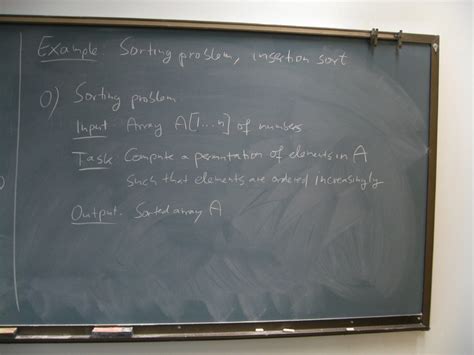 Example: Sorting problem, insertion sort
0) Sorting problem
Input: Array A[1...n] of numbers
Task: Compute a permutation of elements in A
such that elements are ordered increasingly
Output: Sorted array A